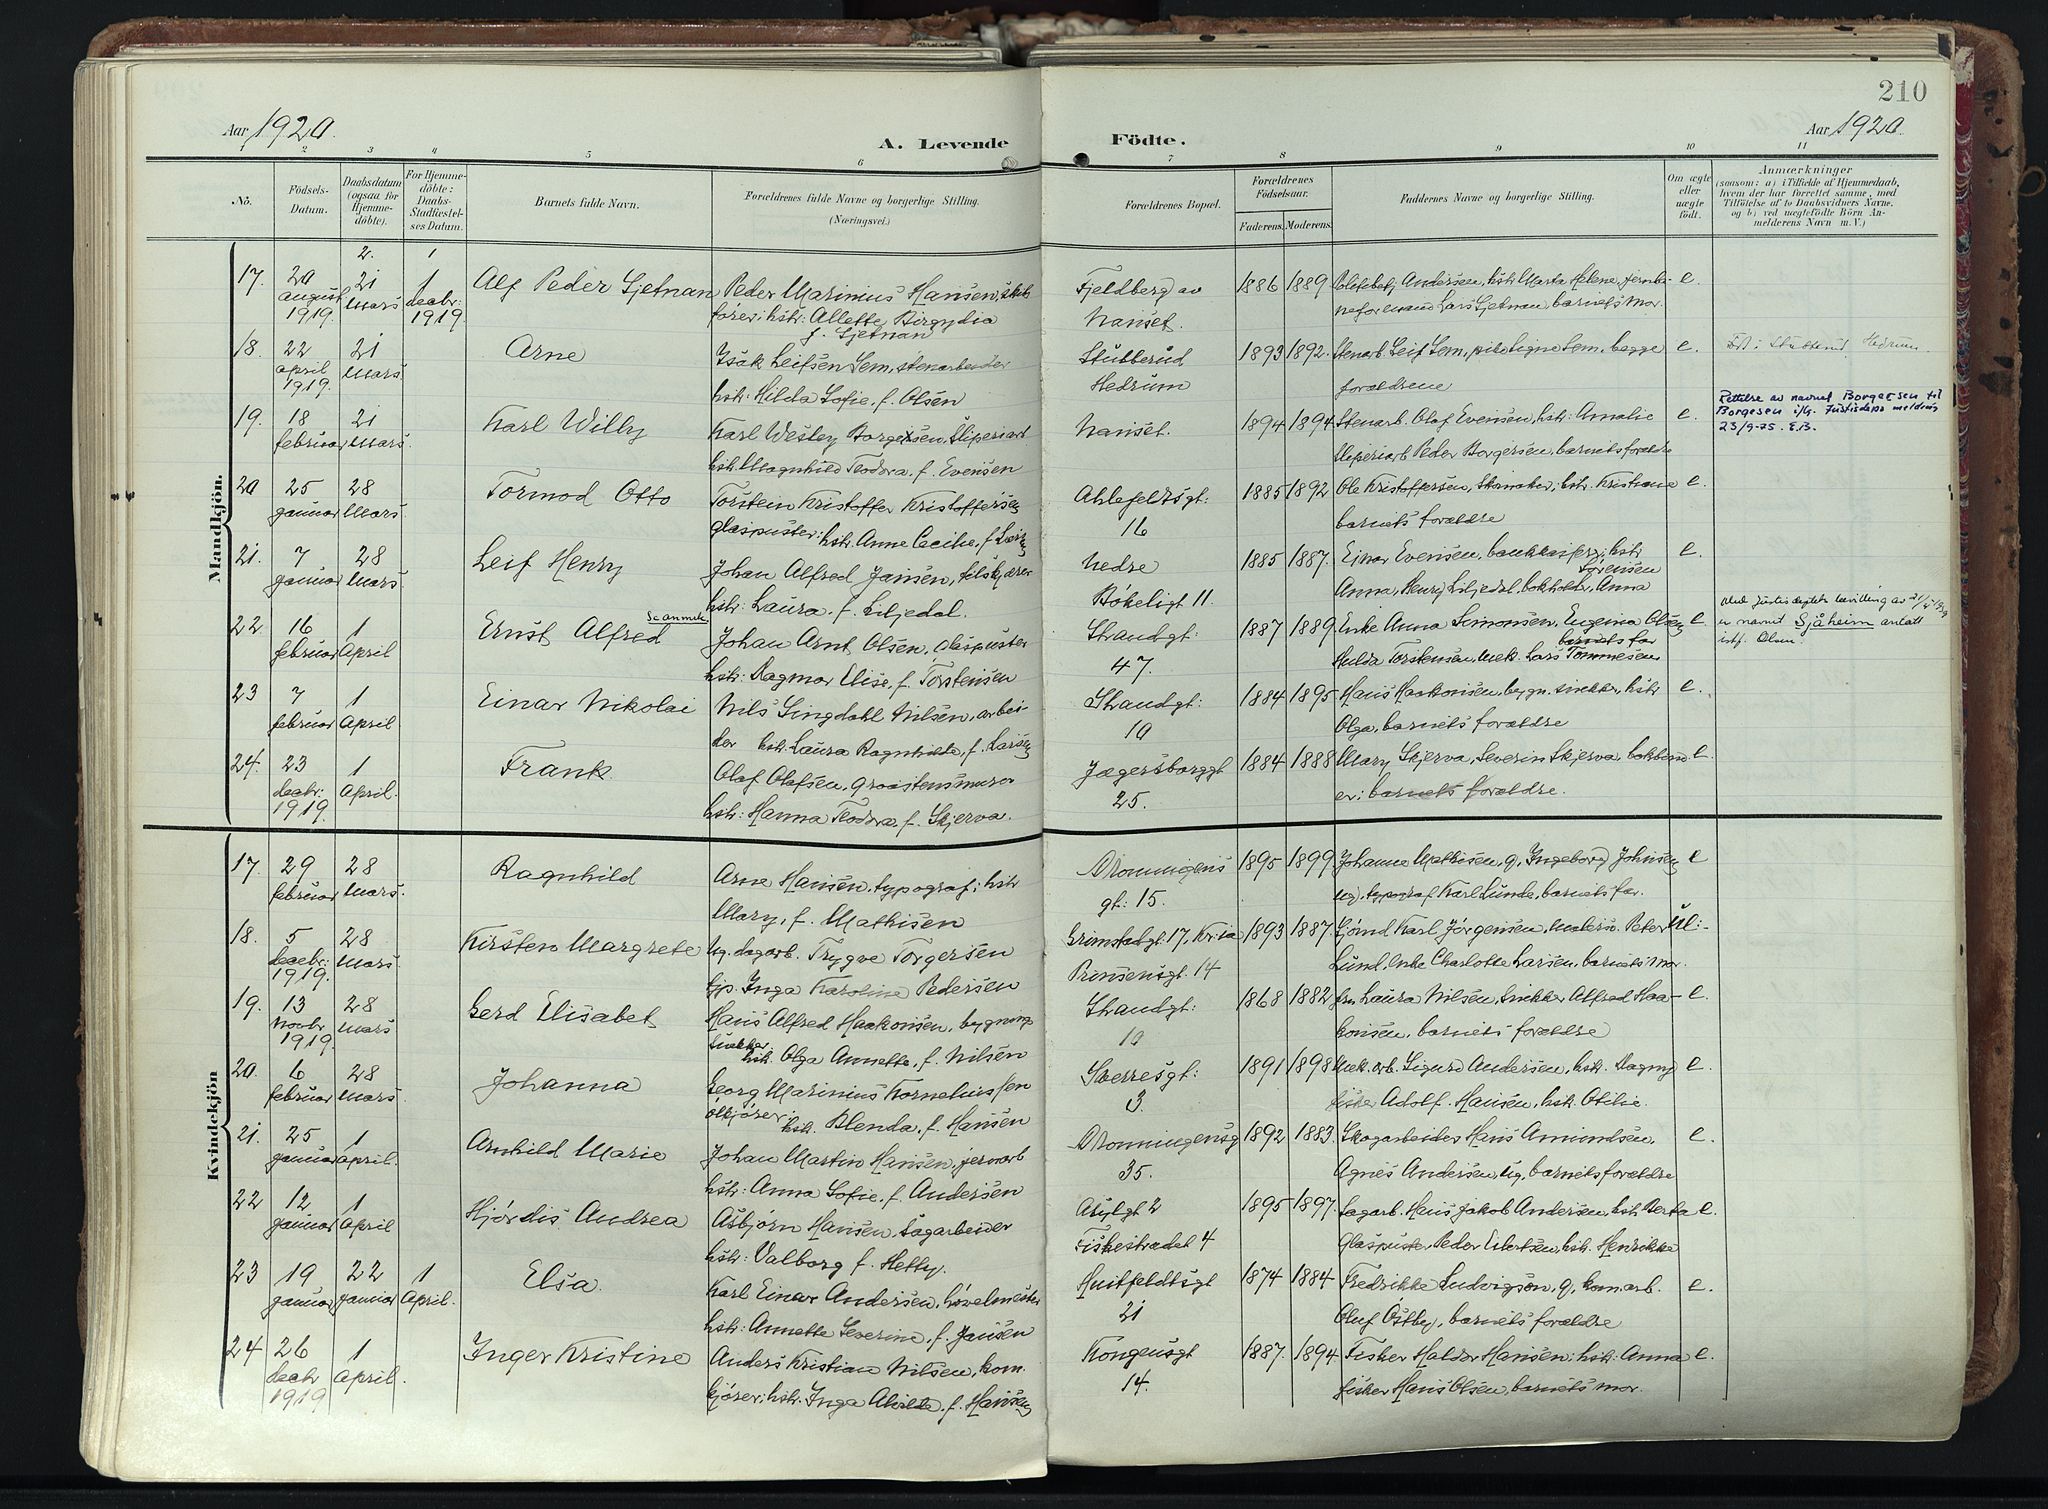 210
Aar 1920.
A. Levende Födte.
Aar 1920.
1 2 3 4 5 6 7 8 9 10 11
No.
Födsels-Datum.
Daabsdatum (ogsaa for Hjemmedöbte).
For Hjemmedöbte: Daabs-Stadfæstelses Datum.
Barnets fulde Navn.
Forældrenes fulde Navne og borgerlige Stilling.
(Næringsvei.)
Forældrenes Bopæl.
Forældrenes Födselsaar.
Faderens. Moderens.
Faddernes Navne og borgerlige Stilling.
Om ægte eller uægte födt.
Anmærkninger
(saasom: a) i Tilfælde af Hjemmedaab, hvem der har forrettet samme, med Tilföielse af to Daabsvidners Navne, og b) ved uægtefödte Börn Anmelderens Navn m. V.)
Mandkjön.
2. 1
17. 20 august 1919. 21 Mars 1 decbr: 1919. Alf Peder Gjetnan Peder Marinius Hansen, skibs
fører; hstr: Allette Birgydia
f. Gjetnan
Fjeldberg av
Nanset.
1886 1889 Andersen, hstr Marta Helene, jernba-
neformann Lars Gjetnan, barnets mor. e.
18. 22 april 1919. 21 Mars. Arne Isak Leifsen Sem, stenarbeider
hstr: Hilda Sofie, f. Olsen
Stubberud
Hedrum
1893 1892. Stenarb. Leif Sem, pike Signe Sem, begge
forældrene e.
19. 18 februar 21 Mars. Karl Willy Karl Wesley Borgersen, sliperiarb
hstr. Magnhild Teodora, f. Evensen
Nanset.
1894 1894 Stenarb. Olaf Evensen, hstr: Amalie
sliperiarb Peder Borgersen, barnets forældre e.
Rettelse av navnet Borgersen til
Borgesen i/flg. Justisdeps melding
23/9-75. E.B.
20 25 januar 28 Mars. Tormod Otto Torstein Kristoffer Kristoffersen
glaspuster; hstr. Anne Cecilie, f.
Ahlefeldtsgt:
16
1885 1892 Ole Kristoffersen, Skomaker; hstr. Kristiane
barnets forældre e.
21. 7 januar 28 Mars. Leif Henry Johan Alfred Jansen,
hstr: Laura, f. Liljedal.
Nedre
Bøkeligt 11.
1885 1887. Einar Evensen, hstr
Sørensen
Anna, Henry Liljedal, bokholder, Anna e.
22 16 februar 1 April Ernst Alfred Johan Arnt Olsen, glaspuster
hstr: Ragmor Elise, f. Torstensen
Strandgt:
47.
1887 1889 Enke Anna Simonsen, Eugenia Olsen
barnets far
Hulda Torstensen, mek. Lars Tommesen e
Med Justisdeptets bevilling av
er navnet Sjåheim antatt
istf. Olsen.
23 7 februar 1 April Einar Nikolai Nils Singdahl Nilsen, arbei-
der hstr. Laura Ragnhilde, f. Larsen
Strandgt:
10
1884 1895 Hans Haakonsen, bygn. snekker, hstr
Olga, barnets forældre e.
24. 23 decbr: 1919. 1 April. Frank. Olaf Olafsen, graastensmurer
hstr: Hanna Teodora, f. Skjerva.
Jægersborggt
25.
1884 1888 Mary Skjerva, Severin Skjerva, bokbind
er; barnets forældre. e.
Kvindekjön
17. 29 februar 28 Mars. Ragnhild Arne Hansen, typograf; hstr
Mary, f. Mathisen
Dronningens
gt: 15.
1895 1899. Johanne Mathisen, g, Ingeborg Johnsen
ug, typograf Karl Lunde, barnets far. e
18. 5 decbr: 1919. 28 Mars. Kirsten Margrete Ug. dagarb. Trygve Torgersen
tjp. Inga Karoline Pedersen
Grimstadgt 17, Kr.ia
Prinsensgt. 14
1893 1887. Karl Jørgensen, malersv. Peter
Lund, enke Charlotte Larsen, barnets mor.
19. 13 Novbr 1919. 28 Mars Gerd Elisabet Hans Alfred Haakonsen, bygnings
snekker
hstr. Olga Annette, f. Nilsen
Strandgt:
10
1868 1882 fru Laura Nilsen, snekker Alfred Haa-
konsen, barnets forældre e.
20. 6 februar 28 Mars. Johanna Georg Marinius Korneliussen
ølkjører; hstr. Blenda, f. Hansen
Sverresgt:
3.
1891 1898 Mek. arb. Sigurd Andersen, hstr. Dagny
fisker Adolf Hansen, hstr. Otilie. e.
21. 25 januar 1 april. Arnhild Marie Johan Martin Hansen, jernarb
hstr: Anna Sofie, f. Andersen
Dronningensg
35.
1892 1883. Skogarbeider Hans Amundsen,
Agnes Andersen, ug, barnets forældre e.
22 12 januar 1 April Hjørdis Andrea Asbjørn Hansen, sagarbeider
hstr: Valborg f. Hetty.
Asylgt 2
Fiskestrædet 4
1895 1897. Sagarb. Hans Jakob Andersen, hstr Berta
Glaspuster Peder Eilertsen, hstr. Henrikke e.
23 19 januar 22 januar 1 April. Elsa. Karl Einar Andersen, høvelmester
hstr: Annette Severine, f. Jansen
Huitfeldtsgt
21
1874 1884 Fredrikke Ludvigson, g, komarb.
Oluf Østby, barnets forældre e.
24 26 decbr 1919 1 April. Inger Kristine Anders Kristian Nilsen, kom.
kjører; hstr. Inga Alvilde, f. Hansen
Kongensgt
14.
1887. 1894. Fisker Haldor Hansen; hstr: Anna
fisker Hans Olsen, barnets mor. e.